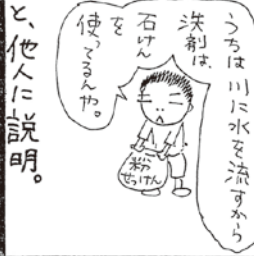 うちは川に水を流すから
洗剤は、
石けん
を
使ってるんや。
粉
せっけん
と、他人に説明。